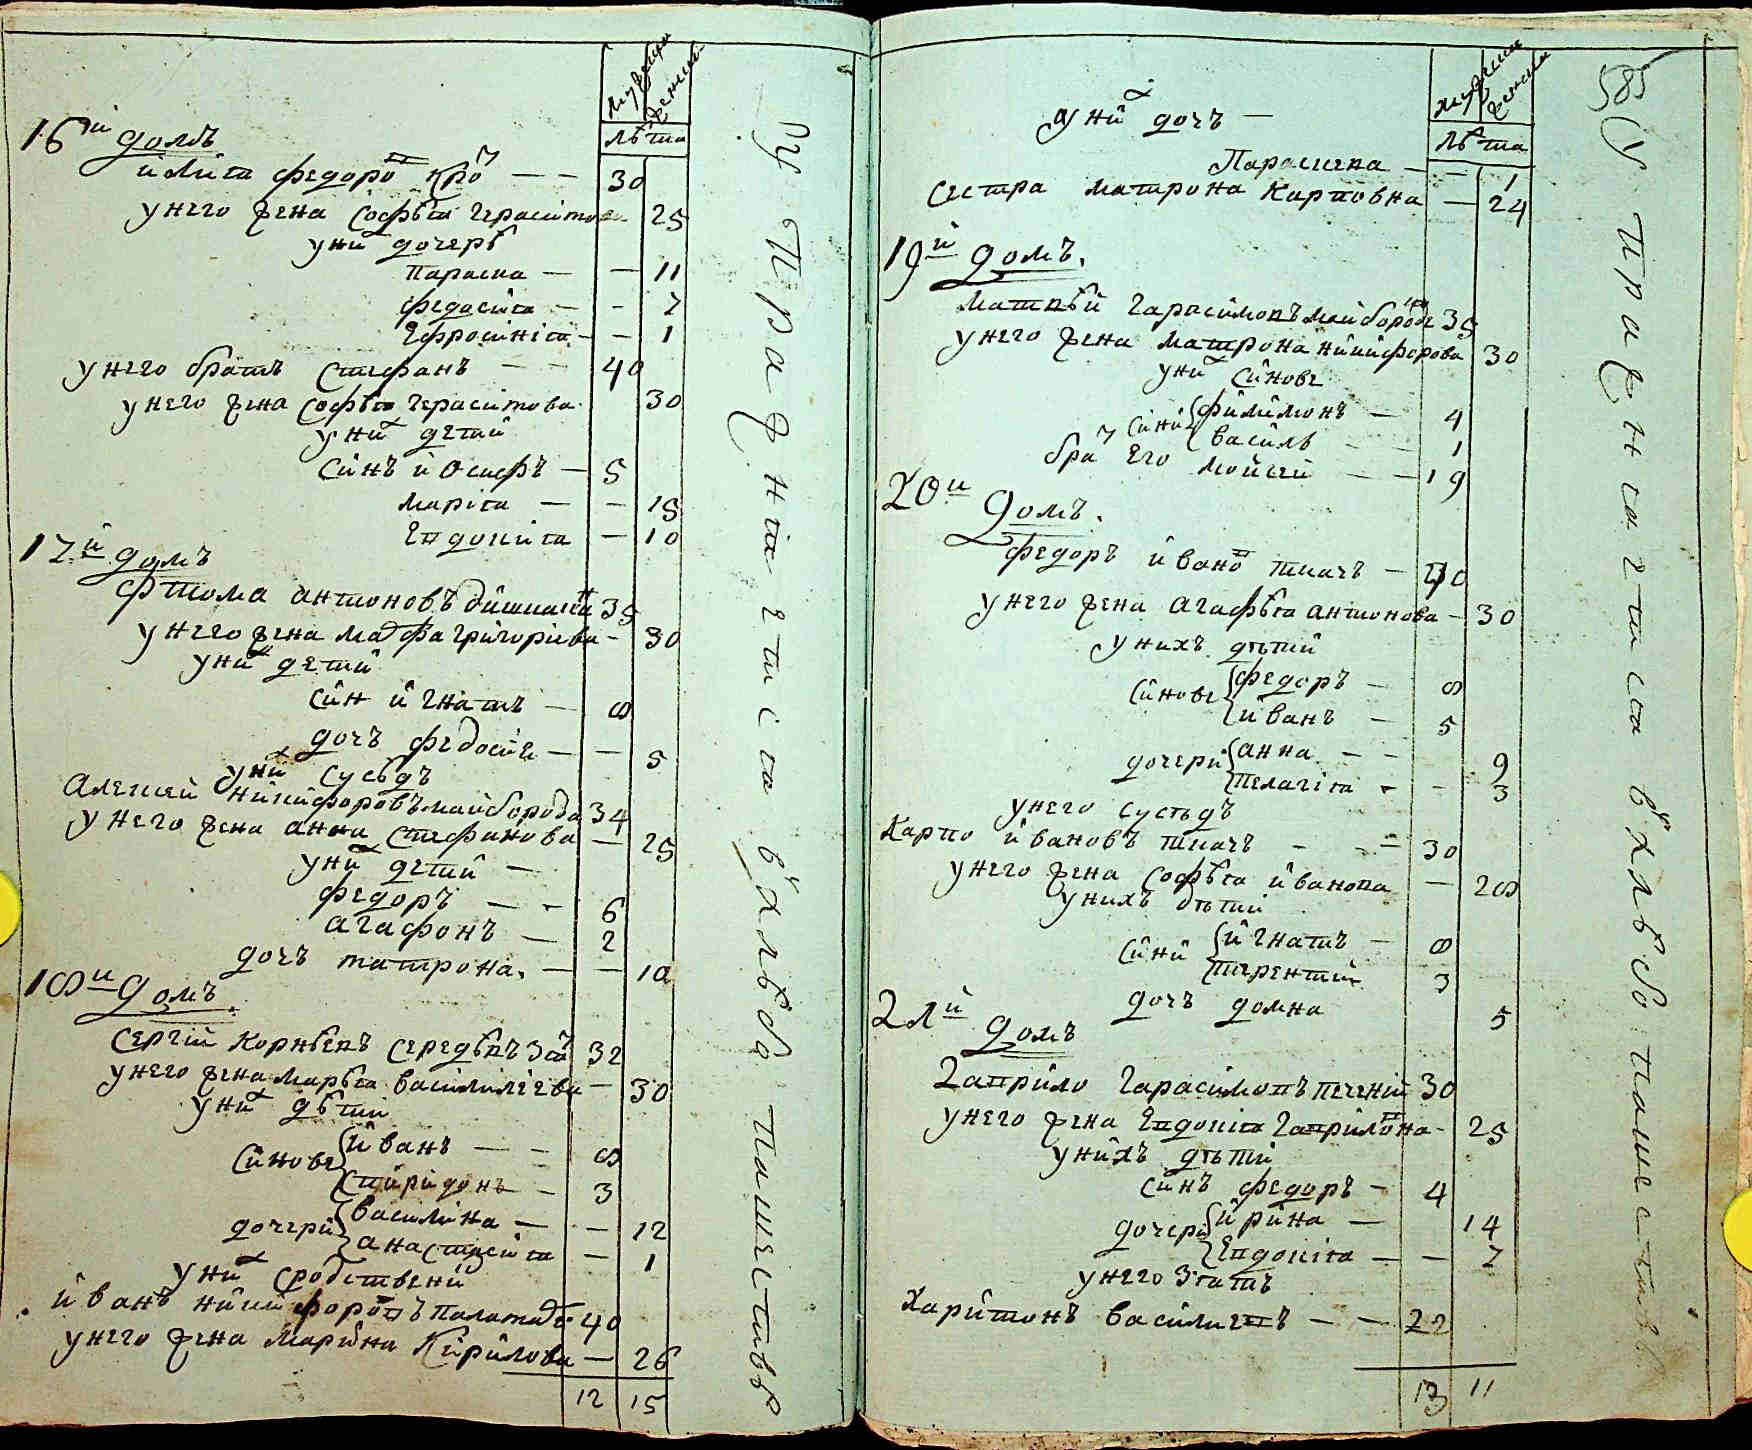 мужеска женска
лѣта
16й домъ
Илия Федоровъ — — 30
у него жена Софѣя Герасимова 25
у них дочерѣ
Параска — — 11
Федосия — - 7
Ефросиния — - 1
у него братъ Стефанъ — — 40
у него жена Софѣя Герасимова 30
у них детий
синъ Иосифъ — 5
Мария — — 15
Евдокия — 10
17й домъ
Фтома Антоновъ 35
у него жена Марфа Григориева - 30
у них детий
син Игнатъ — 8
дочъ Федосия — — 5
у них сусѣдъ
Алексей Никифоровъ Майборода 34
у него жена Анна Стефанова — 25
у них детий —
Федоръ — - 6
Агафонъ — 2
дочъ Матрона — — 10
18й домъ
Сергий Корнѣевъ 32
у него жена Марѣя Василиева — 30
у них дѣтий
синове Иванъ — — 8
Спиридонъ — 3
дочери Василина — — 12
Анастасия — 1
у них сродствений
Иванъ Никифоровъ 40
у него жена Марина Кирилова — 26
12 15
Ружания чтися в хлѣбо
585
мужеска женска
лѣта
у них дочъ —
Параскева — — 1
сестра Матрона Карповна — 24
19й домъ.
Матвѣй Гарасимовъ Майборода 35
у него жена Матрона Никифорова 30
у них синове
сини Филимонъ — 4
Василь — — 1
брат его Мойсей — — 19
20й домъ.
Федоръ Иванов Ткачъ — 40
у него жена Агафѣя Антонова - 30
у нихъ дѣтий
синове Федоръ — 8
Иванъ — 5
дочери Анна — — 9
Пелагия - - 3
у него сусѣдъ
Карпо Ивановъ Ткачъ - - - 30
у него жена Софѣя Иванова — 28
у нихъ дѣтий
сини Игнатъ — 8
Терентий 3
дочъ Домна 5
21й домъ
Гаврило Гарасимовъ Печений 30
у него жена Евдокия Гаврилова - 25
у нихъ дѣтий
синъ Федоръ — 4
дочери Ирина — 14
Евдокия — — 7
у него зять
Харитонъ Василиевъ — — 22
13 11